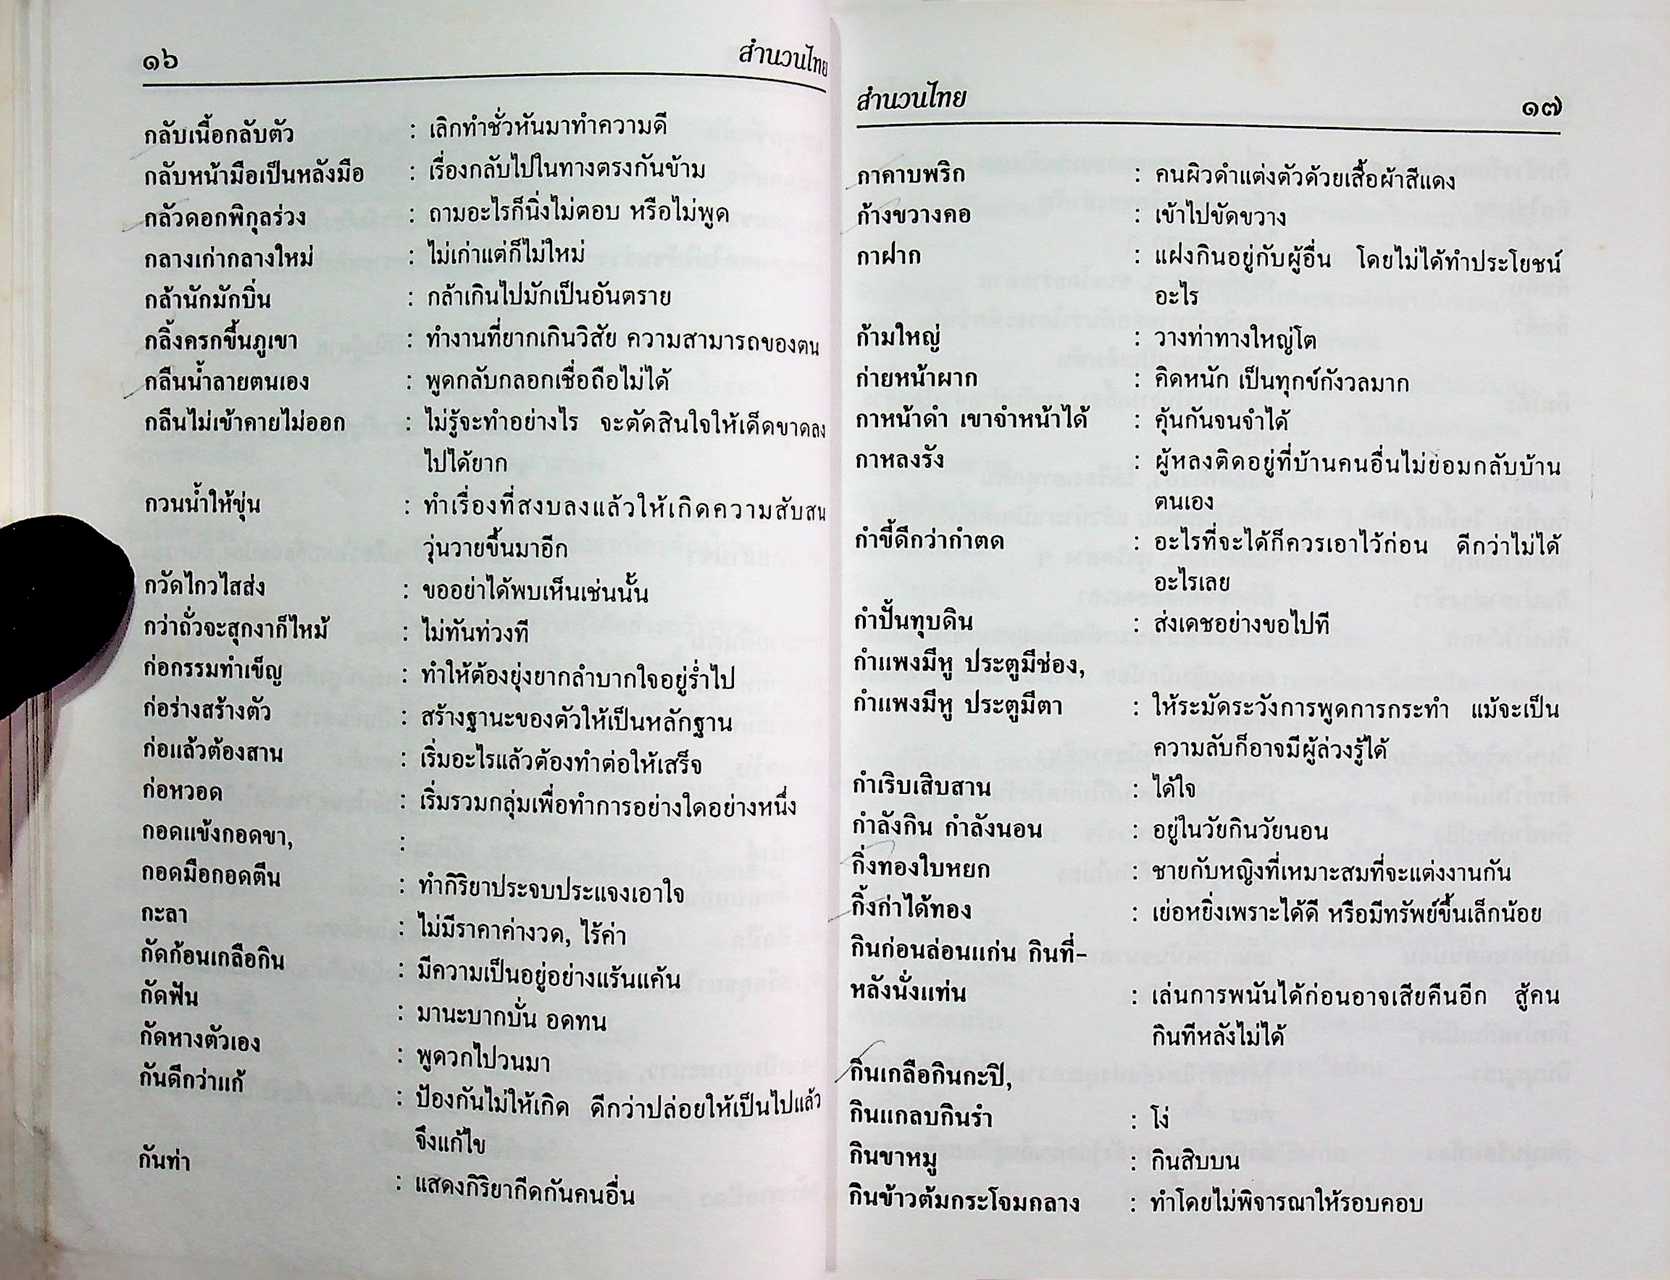 ๑๖ สำนวนไทย
กลับเนื้อกลับตัว : เลิกทำชั่วหันมาทำความดี
กลับหน้ามือเป็นหลังมือ : เรื่องกลับไปในทางตรงกันข้าม
กลัวดอกพิกุลร่วง : ถามอะไรก็นิ่งไม่ตอบ หรือไม่พูด
กลางเก่ากลางใหม่ : ไม่เก่าแต่ก็ไม่ใหม่
กล้านักมักบิ่น : กล้าเกินไปมักเป็นอันตราย
กลิ้งครกขึ้นภูเขา : ทำงานที่ยากเกินวิสัย ความสามารถของตน
กลืนน้ำลายตนเอง : พูดกลับกลอกเชื่อถือไม่ได้
กลืนไม่เข้าคายไม่ออก : ไม่รู้จะทำอย่างไร จะตัดสินใจให้เด็ดขาดลง
ไปได้ยาก
กวนน้ำให้ขุ่น : ทำเรื่องที่สงบลงแล้วให้เกิดความสับสน
วุ่นวายขึ้นมาอีก
กวัดไกวไสส่ง : ขออย่าได้พบเห็นเช่นนั้น
กว่าถั่วจะสุกงาก็ไหม้ : ไม่ทันท่วงที
ก่อกรรมทำเข็ญ : ทำให้ต้องยุ่งยากลำบากใจอยู่ร่ำไป
ก่อร่างสร้างตัว : สร้างฐานะของตัวให้เป็นหลักฐาน
ก่อแล้วต้องสาน : เริ่มอะไรแล้วต้องทำต่อให้เสร็จ
ก่อหวอด : เริ่มรวมกลุ่มเพื่อทำการอย่างใดอย่างหนึ่ง
กอดแข้งกอดขา, :
กอดมือกอดตีน : ทำกิริยาประจบประแจงเอาใจ
กะลา : ไม่มีราคาค่างวด, ไร้ค่า
กัดก้อนเกลือกิน : มีความเป็นอยู่อย่างแร้นแค้น
กัดฟัน : มานะบากบั่น อดทน
กัดหางตัวเอง : พูดวกไปวนมา
กันดีกว่าแก้ : ป้องกันไม่ให้เกิด ดีกว่าปล่อยให้เป็นไปแล้ว
จึงแก้ไข
กันท่า : แสดงกิริยากีดกันคนอื่น
สำนวนไทย ๑๗
กาคาบพริก : คนผิวดำแต่งตัวด้วยเสื้อผ้าสีแดง
ก้างขวางคอ : เข้าไปขัดขวาง
กาฝาก : แฝงกินอยู่กับผู้อื่น โดยไม่ได้ทำประโยชน์
อะไร
ก้ามใหญ่ : วางท่าทางใหญ่โต
ก่ายหน้าผาก : คิดหนัก เป็นทุกข์กังวลมาก
กาหน้าดำ เขาจำหน้าได้ : คุ้นกันจนจำได้
กาหลงรัง : ผู้หลงติดอยู่ที่บ้านคนอื่นไม่ยอมกลับบ้าน
ตนเอง
กำขี้ดีกว่ากำตด : อะไรที่จะได้ก็ควรเอาไว้ก่อน ดีกว่าไม่ได้
อะไรเลย
กำปั้นทุบดิน : ส่งเดชอย่างขอไปที
กำแพงมีหู ประตูมีช่อง,
กำแพงมีหู ประตูมีตา : ให้ระมัดระวังการพูดการกระทำ แม้จะเป็น
ความลับก็อาจมีผู้ล่วงรู้ได้
กำเริบเสิบสาน : ได้ใจ
กำลังกิน กำลังนอน : อยู่ในวัยกินวัยนอน
กิ่งทองใบหยก : ชายกับหญิงที่เหมาะสมที่จะแต่งงานกัน
กิ้งก่าได้ทอง : เย่อหยิ่งเพราะได้ดี หรือมีทรัพย์ขึ้นเล็กน้อย
กินก่อนล่อนแก่น กินที่-
หลังนั่งแท่น : เล่นการพนันได้ก่อนอาจเสียคืนอีก สู้คน
กินทีหลังไม่ได้
กินเกลือกินกะปิ,
กินแกลบกินรำ : โง่
กินขาหมู : กินสิบบน
กินข้าวต้มกระโจมกลาง : ทำโดยไม่พิจารณาให้รอบคอบ